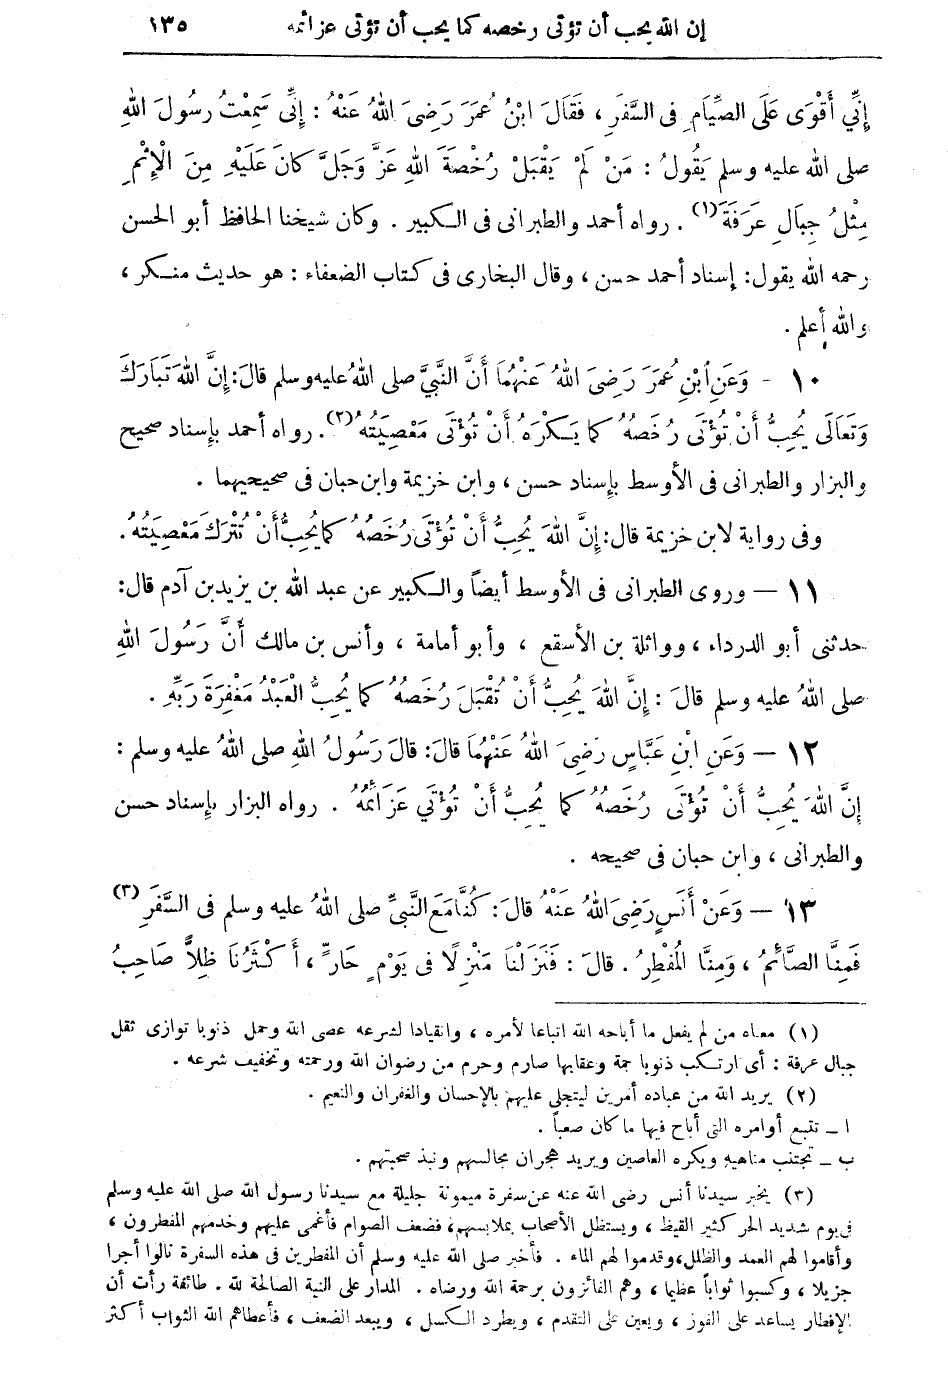 إن الله يحب أن تؤتى رخصه كما يحب أن تؤتى عزائمه ١٣٥
إِنِّي أَقْوَى عَلَى الصِّيَامِ فى السَّفَرِ ، فَقَالَ ابْنُ عُمَرَ رَضِىَ اللهُ عَنْهُ : إِنِّى سَمِعْتُ رسُولَ اللهِ
صلى الله عليه وسلم يَقُولُ : مَنْ لَمْ يَقْبَلْ رُخْصَةَ اللهِ عَزَّ وَجَلَّ كانَ عَلَيْهِ مِنَ الْإِثْمِ
مِثْلُ جِبَالِ عَرَفَةَ (١) . رواه أحمد والطبرانى فى الكبير . وكان شيخنا الحافظ أبو الحسن
رحمه الله يقول : إسناد أحمد حسن ، وقال البخارى فى كتاب الضعفاء : هو حديث منكر ،
والله أعلم .
١٠ - وَعَنِ ابْنِ عُمَرَ رَضِىَ اللهُ عَنْهُمَا أَنَّ النَّبِيَّ صلى اللهُ عليه وسلم قالَ : إِنَّ اللهَ تَبَارَكَ
وَتَعَالَى يُحِبُّ أَنْ تُؤْتَى رُخَصُهُ كما يَكْرَهُ أَنْ تُؤْتَى مَعْصِيَتُهُ (٢) . رواه أحمد بإسناد صحيح
والبزار والطبرانى فى الأوسط بإسناد حسن ، وابن خزيمة وابن حبان فى صحيحيهما .
وفى رواية لابن خزيمة قال : إِنَّ اللهَ يُحِبُّ أَنْ تُؤْتَى رُخَصُهُ كما يُحِبُّ أَنْ تُتْرَكَ مَعْصِيَتُهُ .
١١ — وروى الطبرانى فى الأوسط أيضاً والكبير عن عبد الله بن يزيد بن آدم قال :
حدثنى أبو الدرداء ، وواثلة بن الأسقع ، وأبو أمامة ، وأنس بن مالك أَنَّ رَسُولَ اللهِ
صلى اللهُ عليه وسلم قالَ : إِنَّ اللهَ يُحِبُّ أَنْ تُقْبَلَ رُخَصُهُ كما يُحِبُّ الْعَبْدُ مَغْفِرَةَ رَبِّهِ .
١٢ — وَعَنِ ابْنِ عَبَّاسٍ رَضِىَ اللهُ عَنْهُمَا قالَ : قالَ رَسُولُ اللهِ صلى اللهُ عليه وسلم :
إِنَّ اللهَ يُحِبُّ أَنْ تُؤْتَى رُخَصُهُ كما يُحِبُّ أَنْ تُؤْتَي عَزَائِمُهُ . رواه البزار بإسناد حسن
والطبرانى ، وابن حبان فى صحيحه .
١٣ — وَعَنْ أَنَسٍ رَضِىَ اللهُ عَنْهُ قالَ : كُنَّا مَعَ النَّبِيِّ صلى اللهُ عليه وسلم فى السَّفَرِ (٣)
فَمِنَّا الصَّائِمُ ، وَمِنَّا الْمُفْطِرُ . قالَ : فَنَزَلْنَا مَنْزِلًا فى يَوْمٍ حَارٍّ ، أَكْثَرُنَا ظِلاًّ صَاحِبُ
(١) معناه من لم يفعل ما أباحه الله اتباعا لأمره ، وانقيادا لشرعه عصى الله وحمل ذنوبا توازى ثقل
جبال عرفة : أى ارتكب ذنوبا جمة وعقابها صارم وحرم من رضوان الله ورحمته وتخفيف شرعه .
(٢) يريد الله من عباده أمرين ليتجلى عليهم بالإحسان والغفران والنعيم .
ا — تتبع أوامره التى أباح فيها ما كان صعباً .
ب — تجتنب مناهيه ويكره العاصين ويريد هجران مجالسهم ونبذ صحبتهم .
(٣) يخبر سيدنا أنس رضى الله عنه عن سفرة ميمونة جليلة مع سيدنا رسول الله صلى الله عليه وسلم
فى يوم شديد الحر كثير القيظ ، ويستظل الأصحاب بملابسهم ، فضعف الصوام فأغمى عليهم وخدمهم المفطرون ،
وأقاموا لهم العمد والظلل ، وقدموا لهم الماء . فأخبر صلى الله عليه وسلم أن المفطرين فى هذه السفرة نالوا أجرا
جزيلا ، وكسبوا ثواباً عظيما ، وهم الفائزون برحمة الله ورضاه . المدار على النية الصالحة لله . طائفة رأت أن
الإفطار يساعد على الفوز ، ويعين على التقدم ، ويطرد الكسل ، ويبعد الضعف ، فأعطاهم الله الثواب أكثر